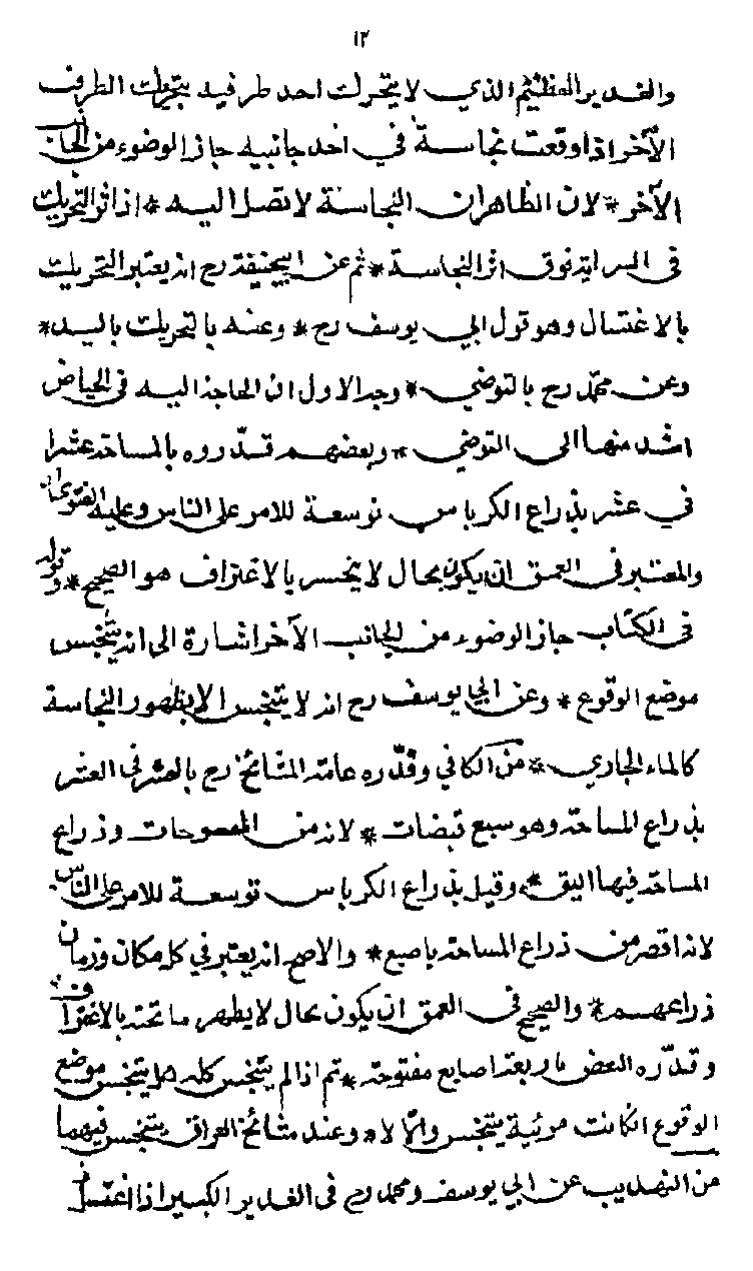 ١٢
والغدير العظيم الذي لا يتحرك احد طرفيه بتحريك الطرف
الآخر اذا وقعت نجاسة في احد جانبيه جاز الوضوء من الجانب
الآخر * لان الظاهر ان النجاسة لا تصل اليه * اذ اثر التحريك
في السراية فوق اثر النجاسة * ثم عن ابيحنيفة رح انه يعتبر التحريك
بالاغتسال وهو قول ابي يوسف رح * وعنه بالتحريك باليد *
وعن محمد رح بالتوضي * وجه الاول ان الحاجة اليه في الحياض
اشد منها الى التوضي * وبعضهم قدّروه بالمساحة عشرا
في عشر بذراع الكرباس توسعة للامر على الناس وعليه الفتوى *
والمعتبر في العمق ان يكون بحال لا ينحسر بالاغتراف هو الصحيح * وقوله
في الكتاب جاز الوضوء من الجانب الآخر اشارة الى انه يتنجس
موضع الوقوع * وعن ابي يوسف رح انه لا يتنجس الا بظهور النجاسة
كالماء الجاري * من الكافي وقدّره عامة المشائخ رح بالعشر في العشر
بذراع المساحة وهو سبع قبضات * لانه من الممسوحات وذراع
المساحة فيها اليق * وقيل بذراع الكرباس توسعة للامر على الناس
لانه اقصر من ذراع المساحة باصبع * والاصح انه يعتبر في كل مكان وزمان
ذراعهم * والصحيح في العمق ان يكون بحال لا يظهر ما تحته بالاغتراف
وقدّره البعض باربعة اصابع مفتوحة * ثم اذا لم يتنجس كله هل يتنجس موضع
الوقوع ان كانت مرئية يتنجس والّا لا * وعند مشائخ العراق يتنجس فيهما
من التهذيب عن ابي يوسف ومحمد رح في الغدير الكبير اذا اغتسل